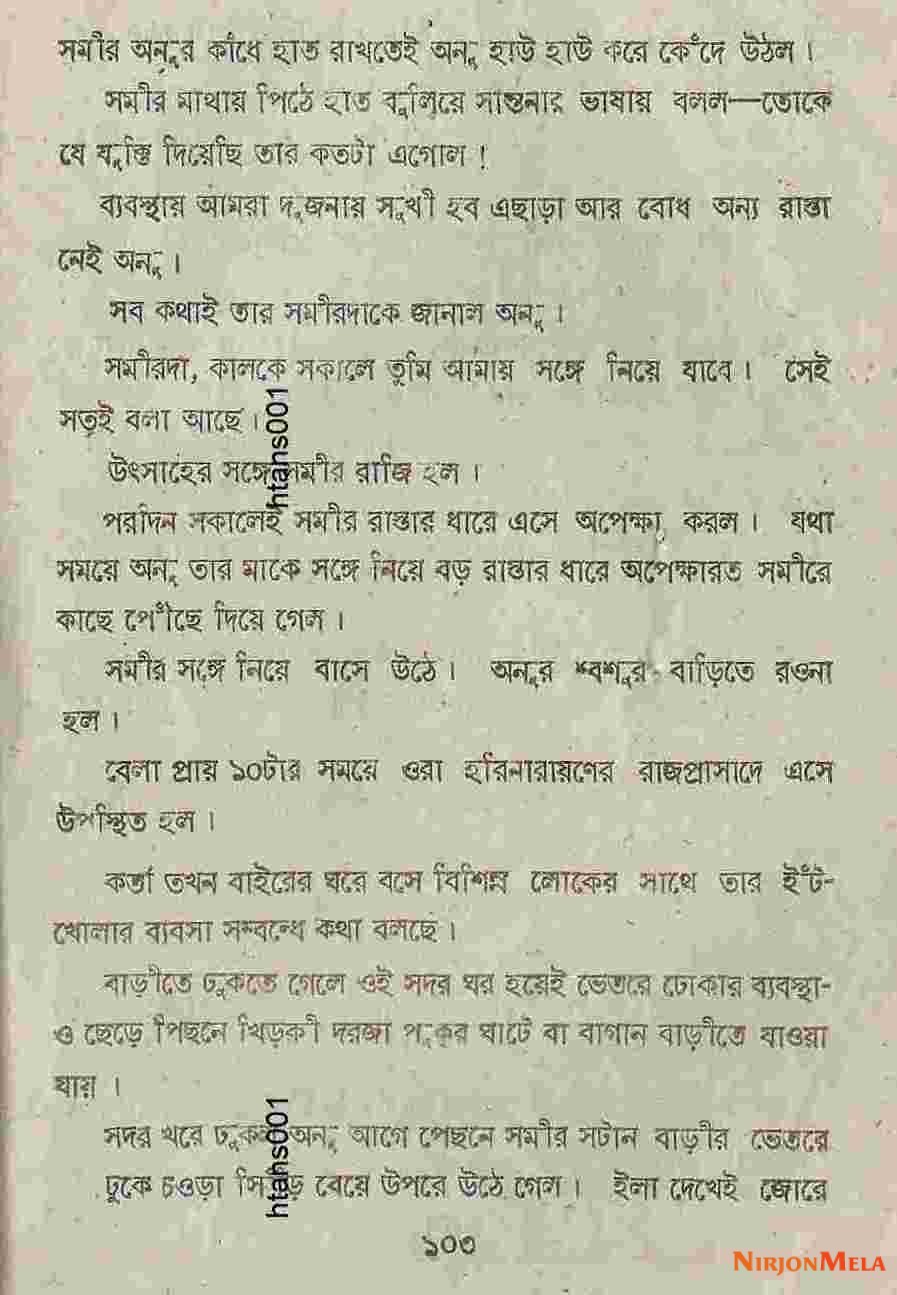 সমীর অনুর কাঁধে হাত রাখতেই অনু হাউ হাউ করে কেঁদে উঠল ।
সমীর মাথায় পিঠে হাত বুলিয়ে সান্তনার ভাষায় বলল—তোকে
যে যুক্তি দিয়েছি তার কতটা এগোল !
ব্যবস্থায় আমরা দুজনায় সুখী হব এছাড়া আর বোধ অন্য রাস্তা
নেই অনু ।
সব কথাই তার সমীরদাকে জানাল অনু ।
সমীরদা, কালকে সকালে তুমি আমায় সঙ্গে নিয়ে যাবে । সেই
সতৃই বলা আছে ।
উৎসাহের সঙ্গে সমীর রাজি হল ।
পরদিন সকালেই সমীর রাস্তার ধারে এসে অপেক্ষা করল । যথা
সময়ে অনু তার মাকে সঙ্গে নিয়ে বড় রাস্তার ধারে অপেক্ষারত সমীরে
কাছে পৌঁছে দিয়ে গেল ।
সমীর সঙ্গে নিয়ে বাসে উঠে । অনুর শ্বশুর বাড়িতে রওনা
হল ।
বেলা প্রায় ১০টার সময়ে ওরা হরিনারায়ণের রাজপ্রাসাদে এসে
উপস্থিত হল ।
কর্তা তখন বাইরের ঘরে বসে বিশিন্ন লোকের সাথে তার ইঁট-
খোলার ব্যবসা সম্বন্ধে কথা বলছে ।
বাড়ীতে ঢুকতে গেলে ওই সদর ঘর হয়েই ভেতরে ঢোকার ব্যবস্থা-
ও ছেড়ে পিছনে খিড়কী দরজা পুকুর ঘাটে বা বাগান বাড়ীতে যাওয়া
যায় ।
সদর খরে অনু আগে পেছনে সমীর সটান বাড়ীর ভেতরে
ঢুকে চওড়া সিঁড়ি বেয়ে উপরে উঠে গেল । ইলা দেখেই জোরে
১০৩
htans001
htans001
NIRJONMELA